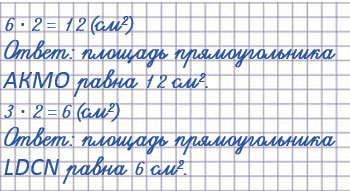 6 · 2 = 12 (см²)
Ответ: площадь прямоугольника
АКМО равна 12 см².
3 · 2 = 6 (см²)
Ответ: площадь прямоугольника
LDCN равна 6 см².